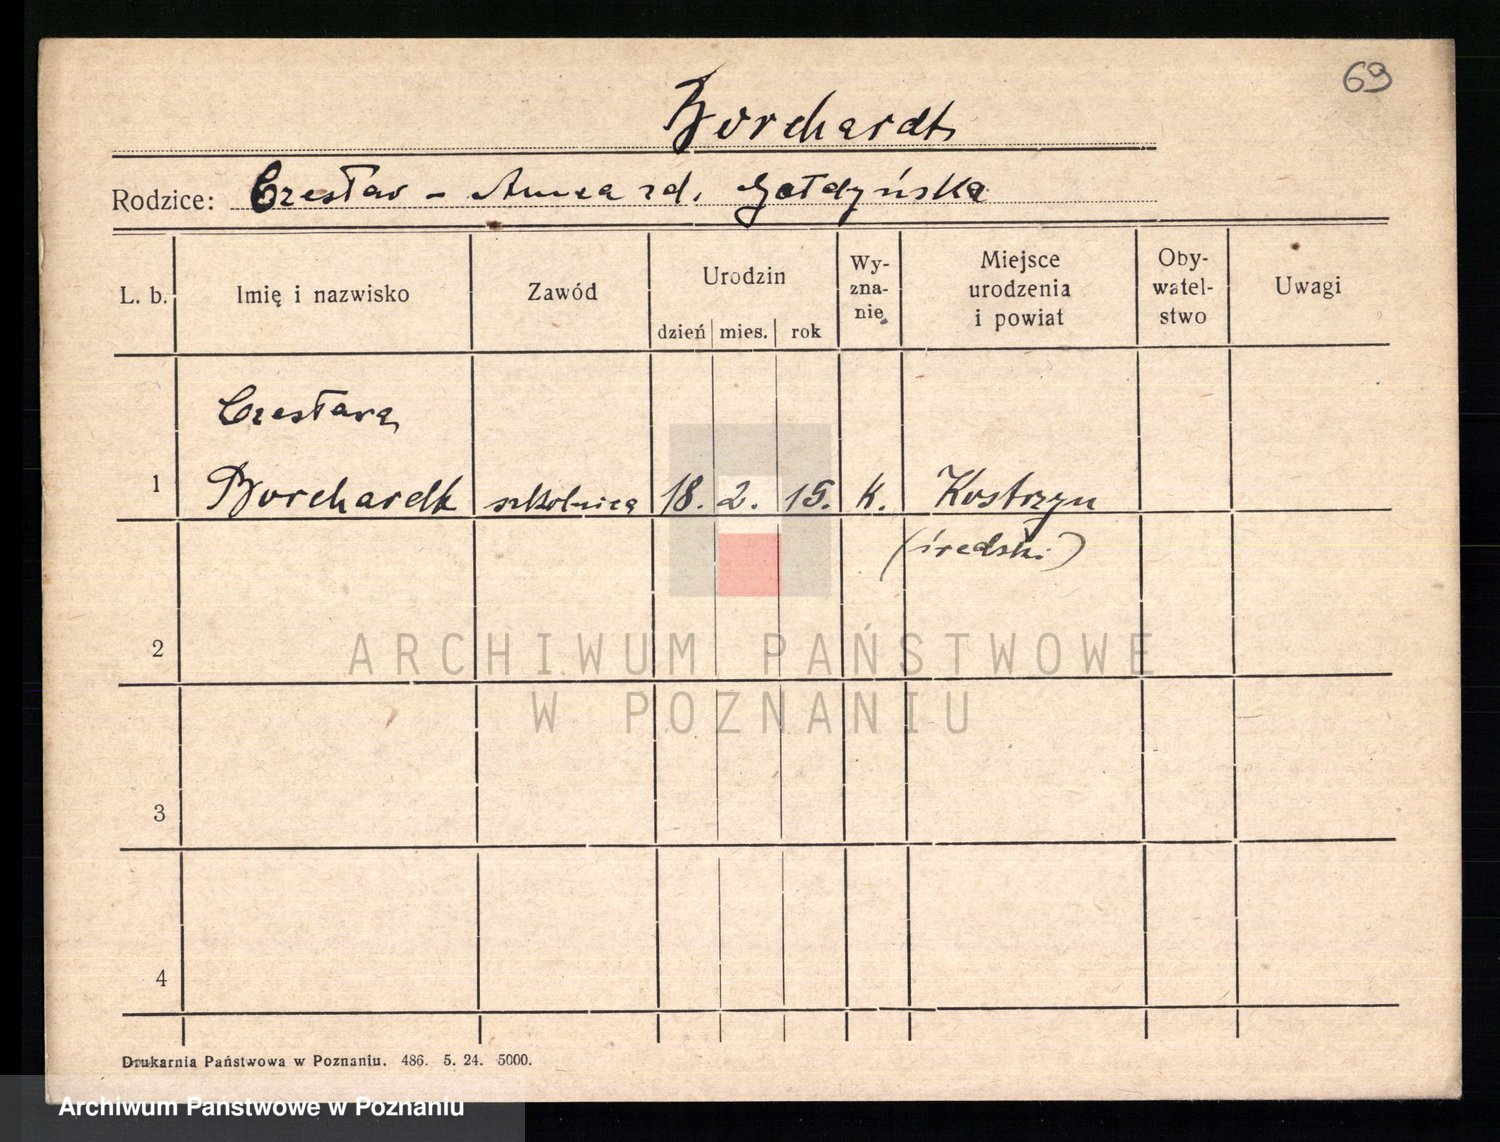 69
Borchardt
Rodzice: Czesław - Anna zd. Gołdyńska
L. b. Imię i nazwisko Zawód Urodzin dzień mies. rok Wy-zna-nie Miejsce urodzenia i powiat Oby-watel-stwo Uwagi
Czesława
1 Borchardt szkolnica 18. 2. 15. k. Kostrzyn
(średski)
2
ARCHIWUM PAŃSTWOWE
W POZNANIU
3
4
Drukarnia Państwowa w Poznaniu. 486. 5. 24. 5000.
Archiwum Państwowe w Poznaniu